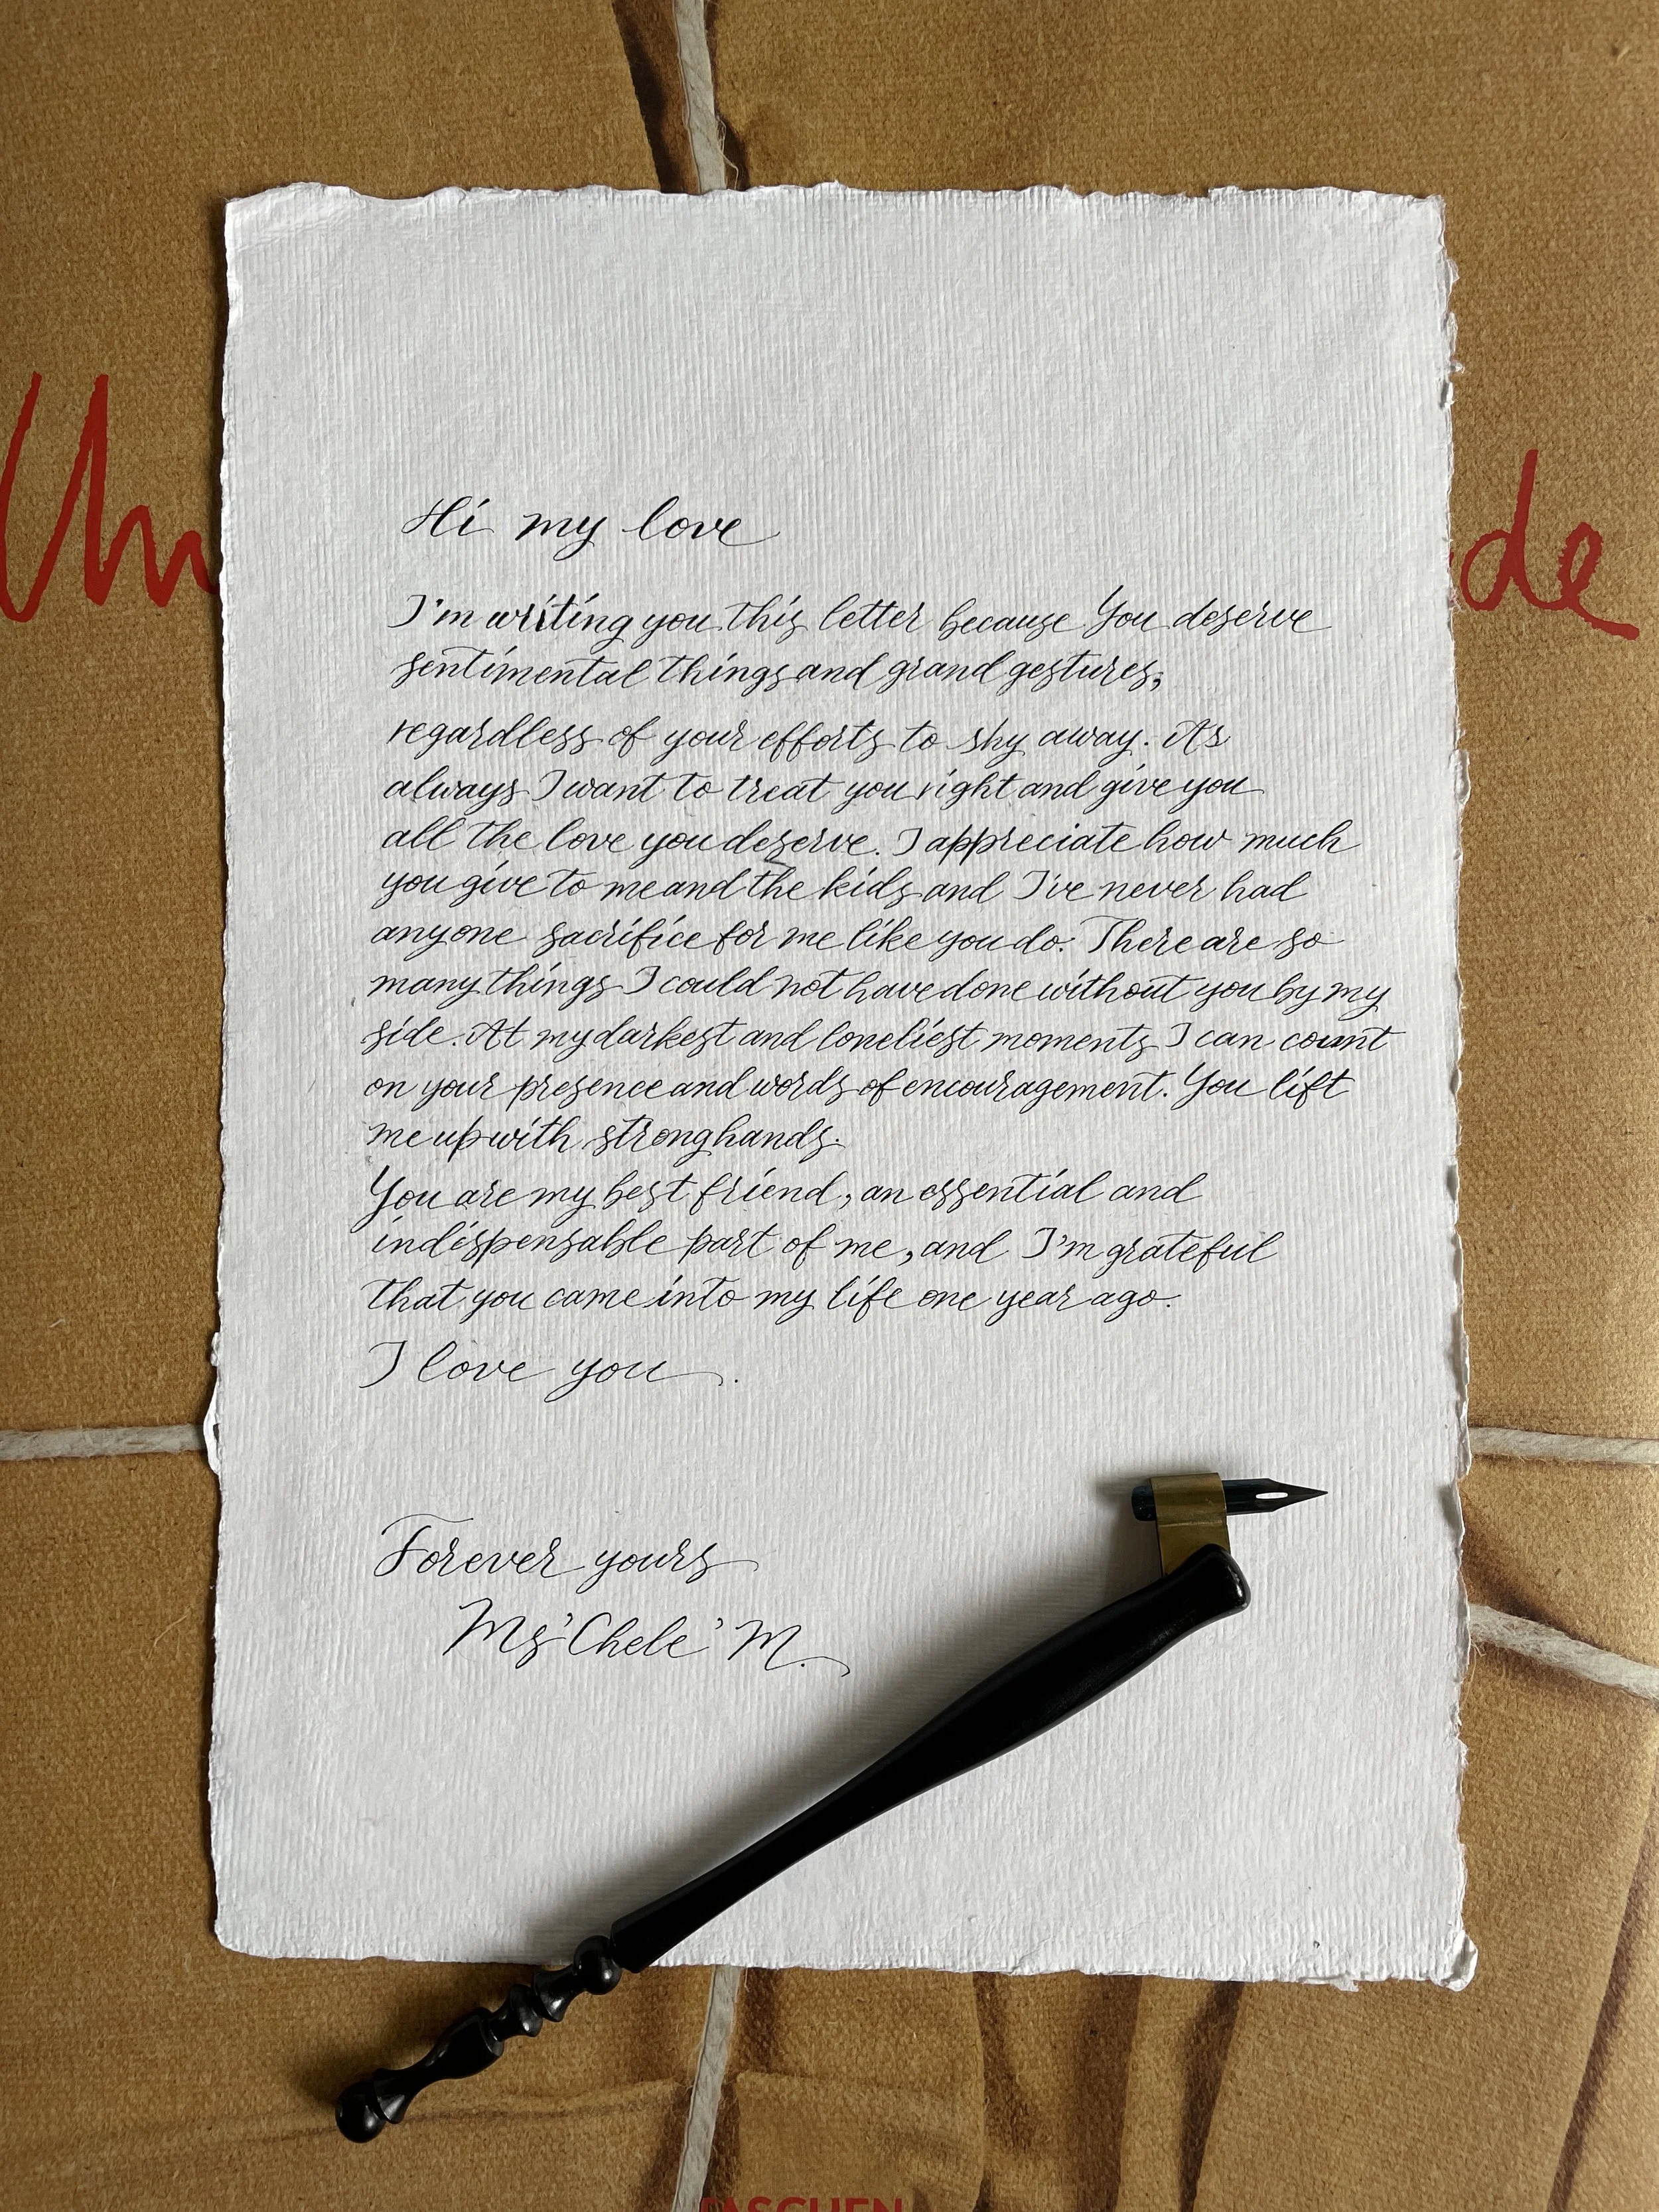 Hi my love
I'm writing you this letter because You deserve
sentimental things and grand gestures,
regardless of your efforts to shy away. As
always I want to treat you right and give you
all the love you deserve. I appreciate how much
you give to me and the kids and I've never had
anyone sacrifice for me like you do. There are so
many things I could not have done without you by my
side. At my darkest and loneliest moments I can count
on your presence and words of encouragement. You lift
me up with strong hands.
You are my best friend, an essential and
indispensable part of me, and I'm grateful
that you came into my life one year ago.
I love you.
Forever yours
Ms'Chele' M.
TASCHEN